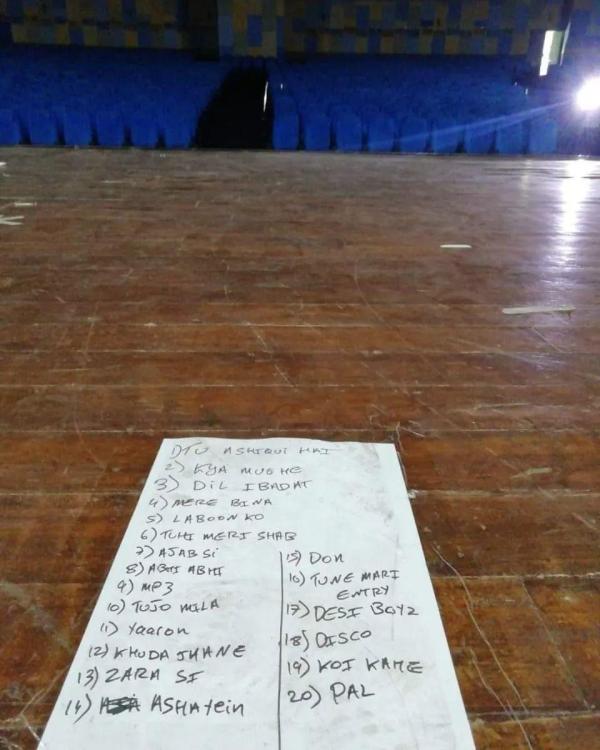 1) TU ASHIQUI HAI
2) KYA MUGHE
3) DIL IBADAT
4) MERE BINA
5) LABOON KO
6) TUHI MERI SHAB
7) AJAB Si
8) ABHI ABHI
9) MP3
10) TUJO MILA
11) Yaaron
12) KHUDA JHANE
13) ZARA SI
14) ASHAYein
15) DON
16) TUNE MARI
ENTRY
17) DESI BOYZ
18) DISCO
19) KOI KAHE
20) PAL